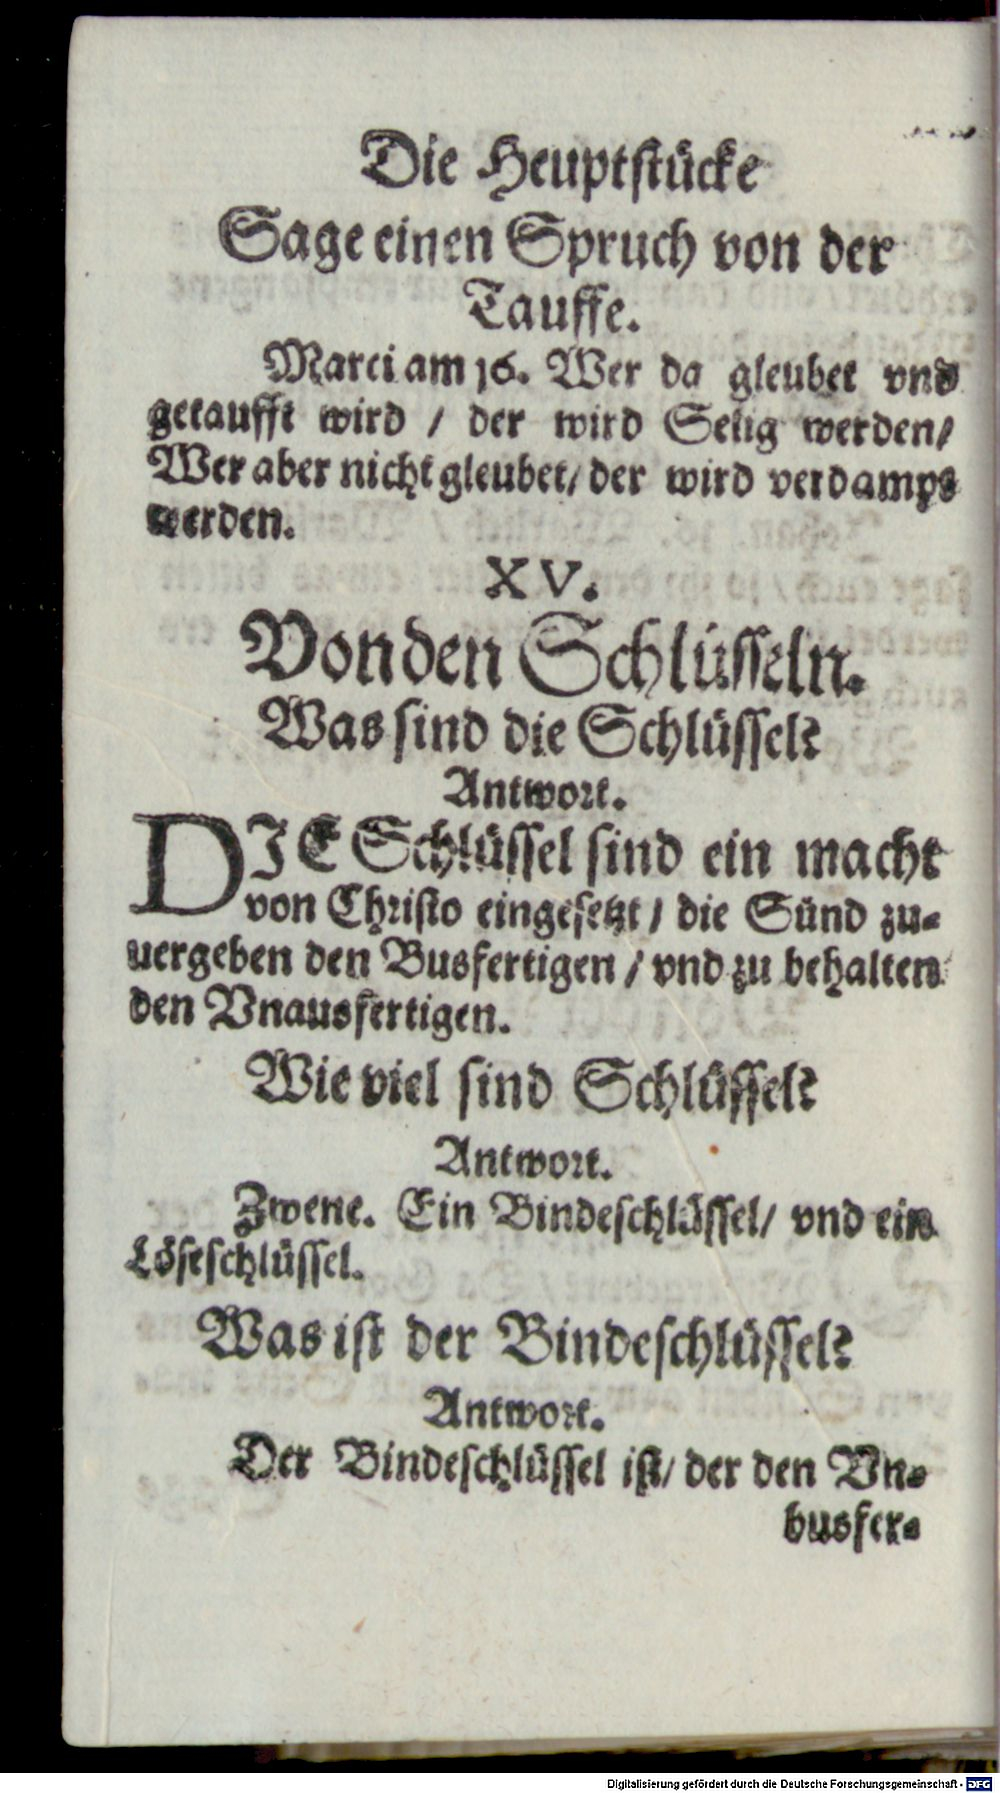 Die Heuptstücke
Sage einen Spruch von der
Tauffe.
Marci am 16. Wer da gleubet vnd
getaufft wird / der wird Selig werden/
Wer aber nicht gleubet/ der wird verdampt
werden.
XV.
Von den Schlüsseln.
Was sind die Schlüssel?
Antwort.
DIE Schlüssel sind ein macht
von Christo eingesetzt / die Sünd zu-
uergeben den Busfertigen / vnd zu behalten
den Vnausfertigen.
Wie viel sind Schlüssel?
Antwort.
Zwene. Ein Bindeschlüssel/ vnd ein
Löseschlüssel.
Was ist der Bindeschlüssel?
Antwort.
Der Bindeschlüssel ist/ der den Vn-
busfer-
Digitalisierung gefördert durch die Deutsche Forschungsgemeinschaft - DFG